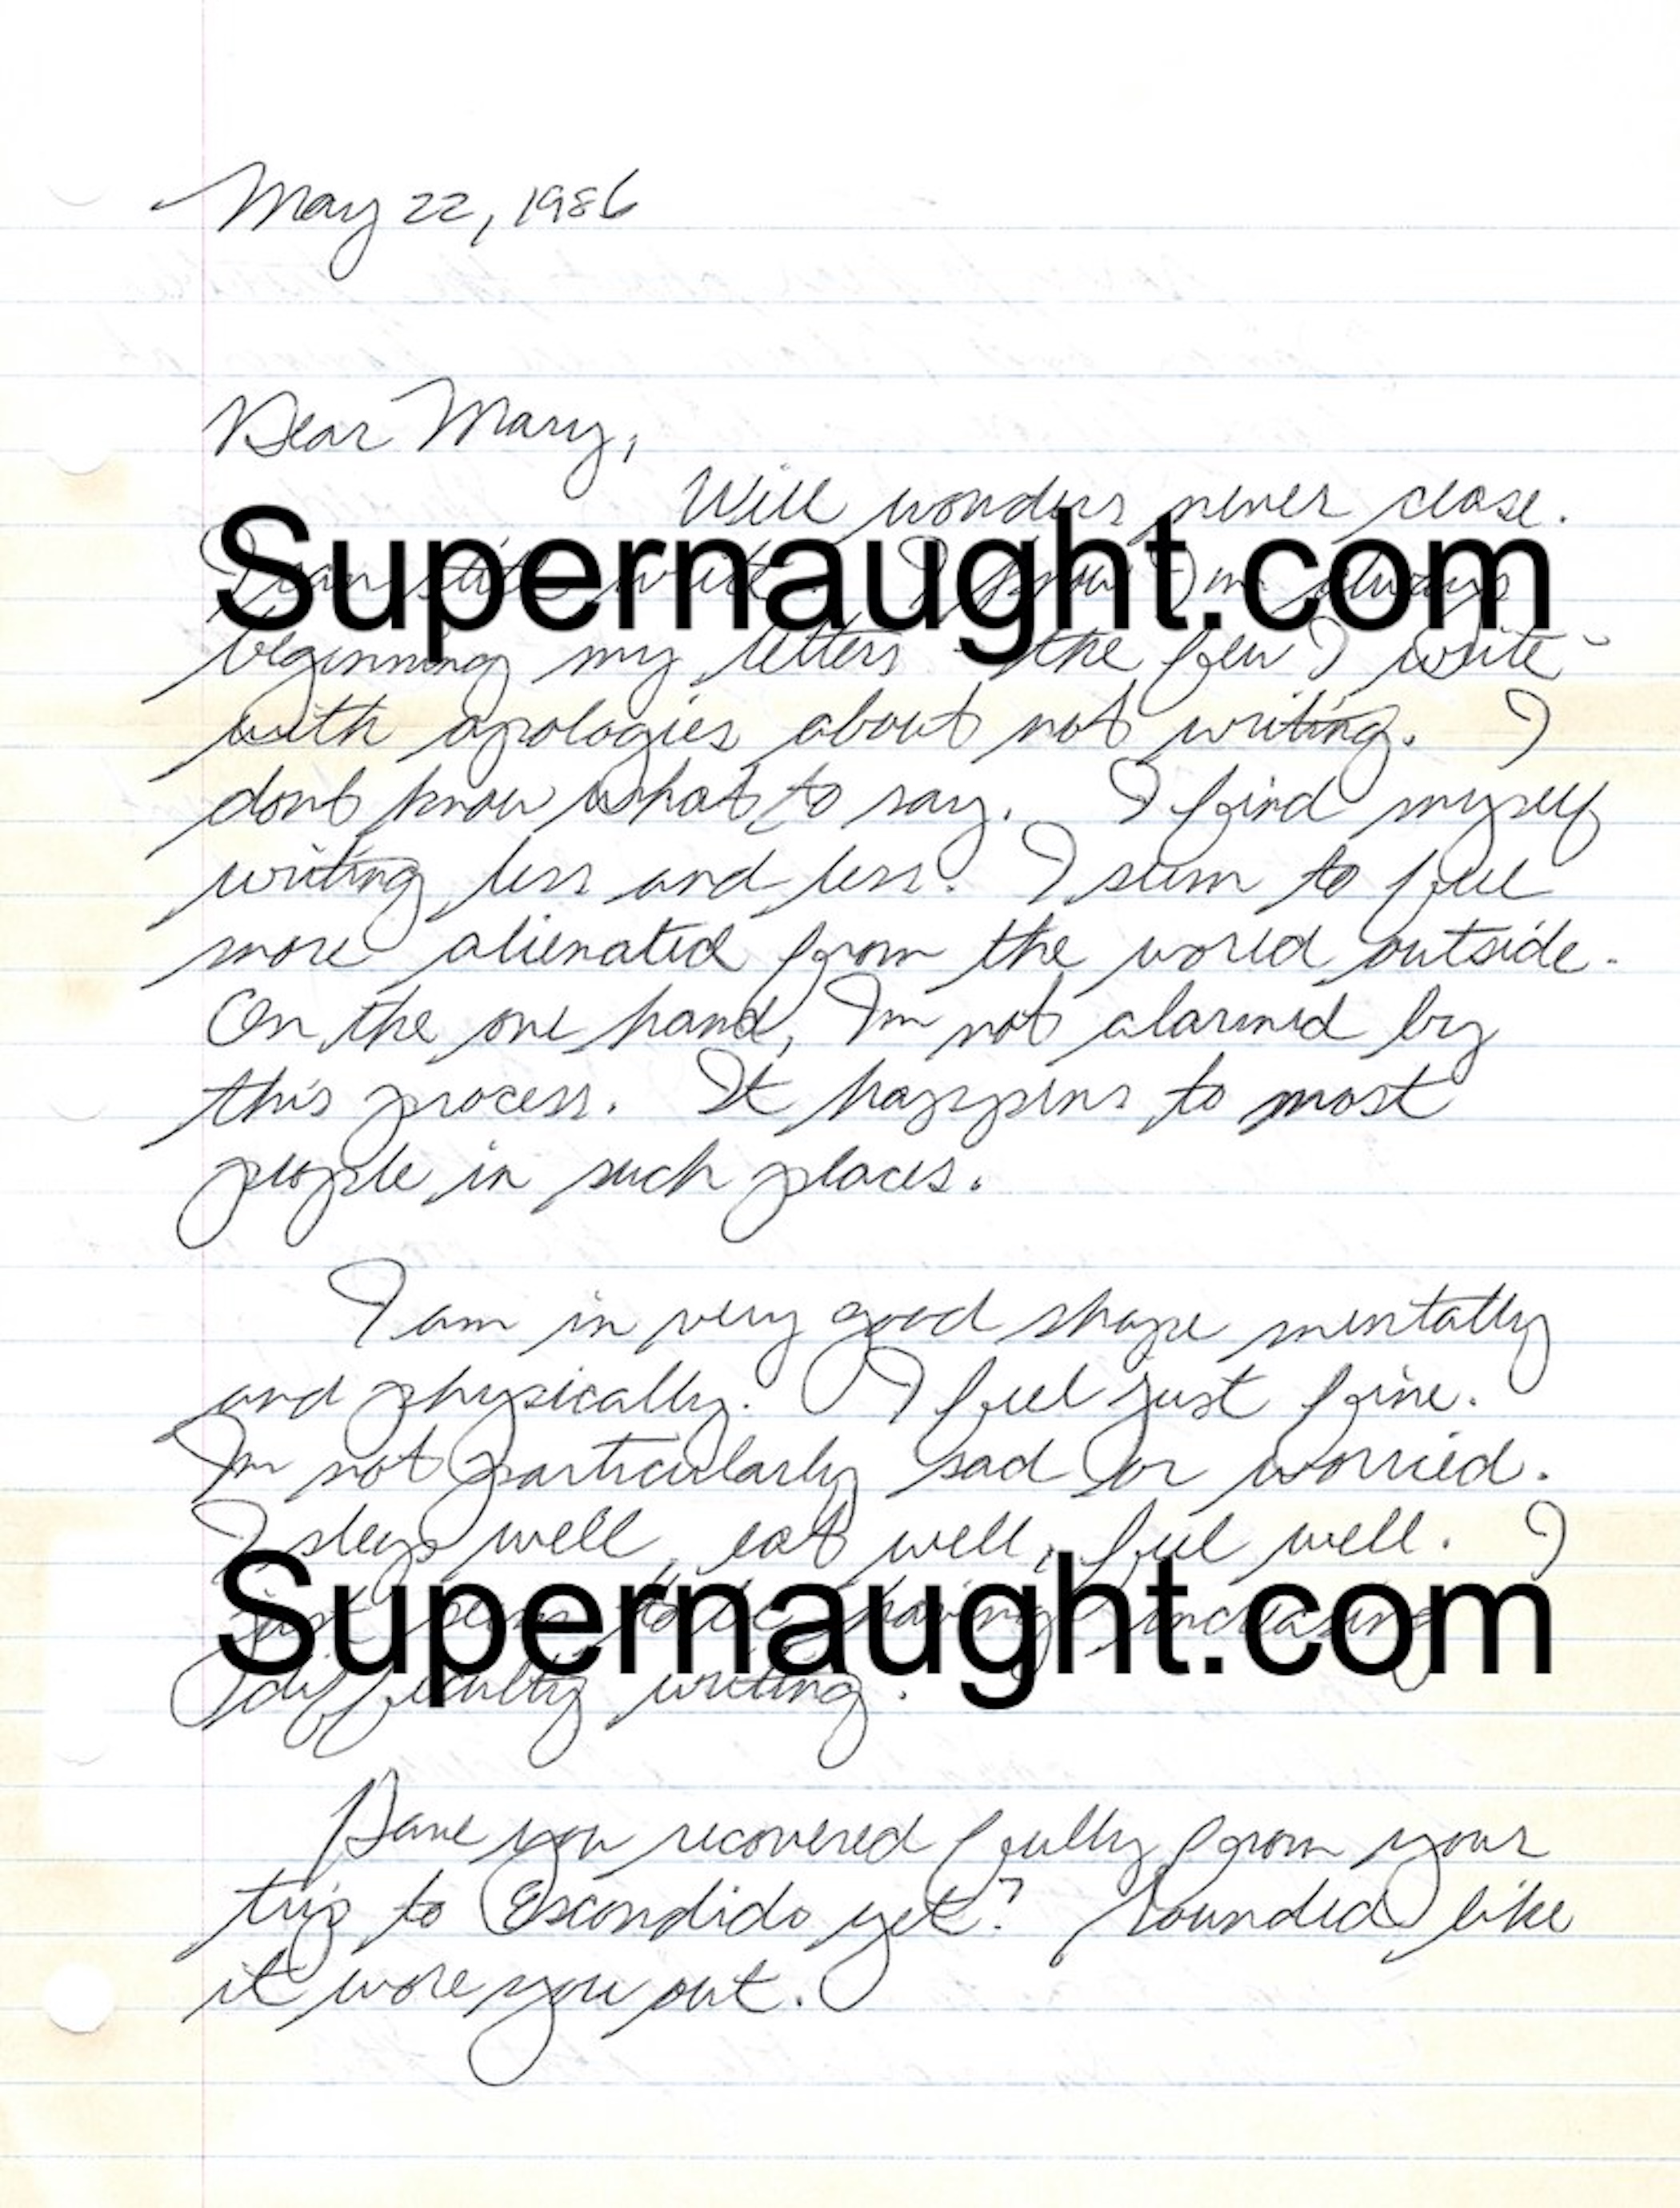 May 22, 1986
Dear Mary,
Will wonders never cease.
Supernaught.com
I can still write. I know I'm always
beginning my letters - the few I write -
with apologies about not writing. I
dont know what to say. I find myself
writing less and less. I seem to feel
more alienated from the world outside.
On the one hand, I'm not alarmed by
this process. It happens to most
people in such places.
I am in very good shape mentally
and physically. I feel just fine.
I'm not particularly sad or worried.
I sleep well, eat well, feel well. I
Supernaught.com
just seem to be having increasing
difficulty writing.
Have you recovered fully from your
trip to Escondido yet? Sounded like
it wore you out.